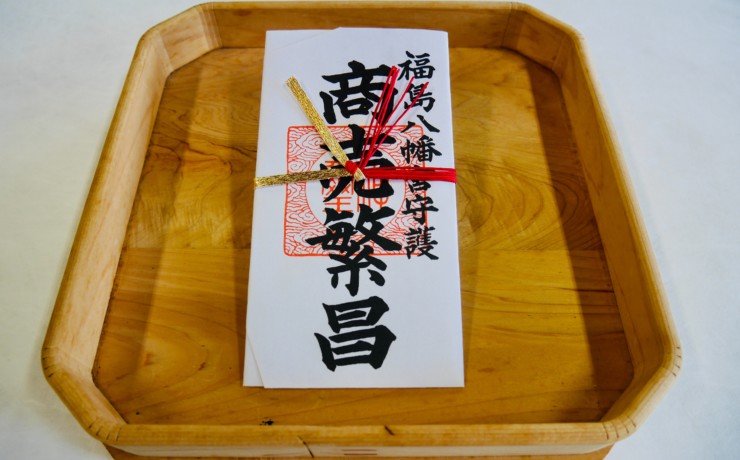 福島八幡宮守護
商売繁昌